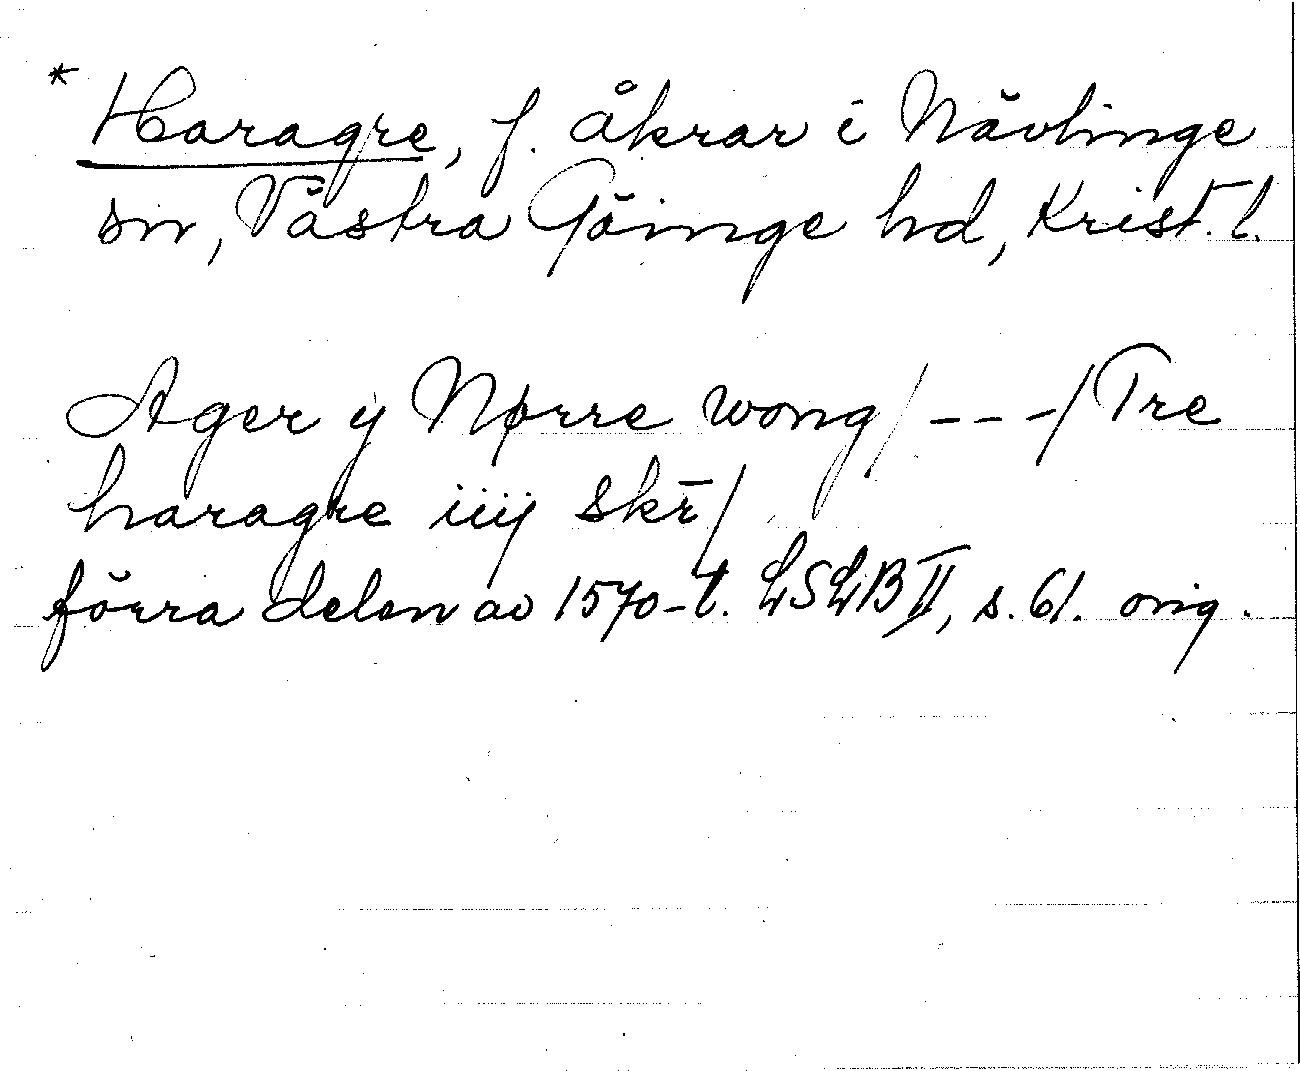 * Haragre, f. åkrar i Nävlinge
sn, Västra Göinge hd, Krist. l.
Ager y Nørre wong/---/Tre
haragre iiij skr̄/
förra delen av 1570-t. LSLB II, s. 61. orig.